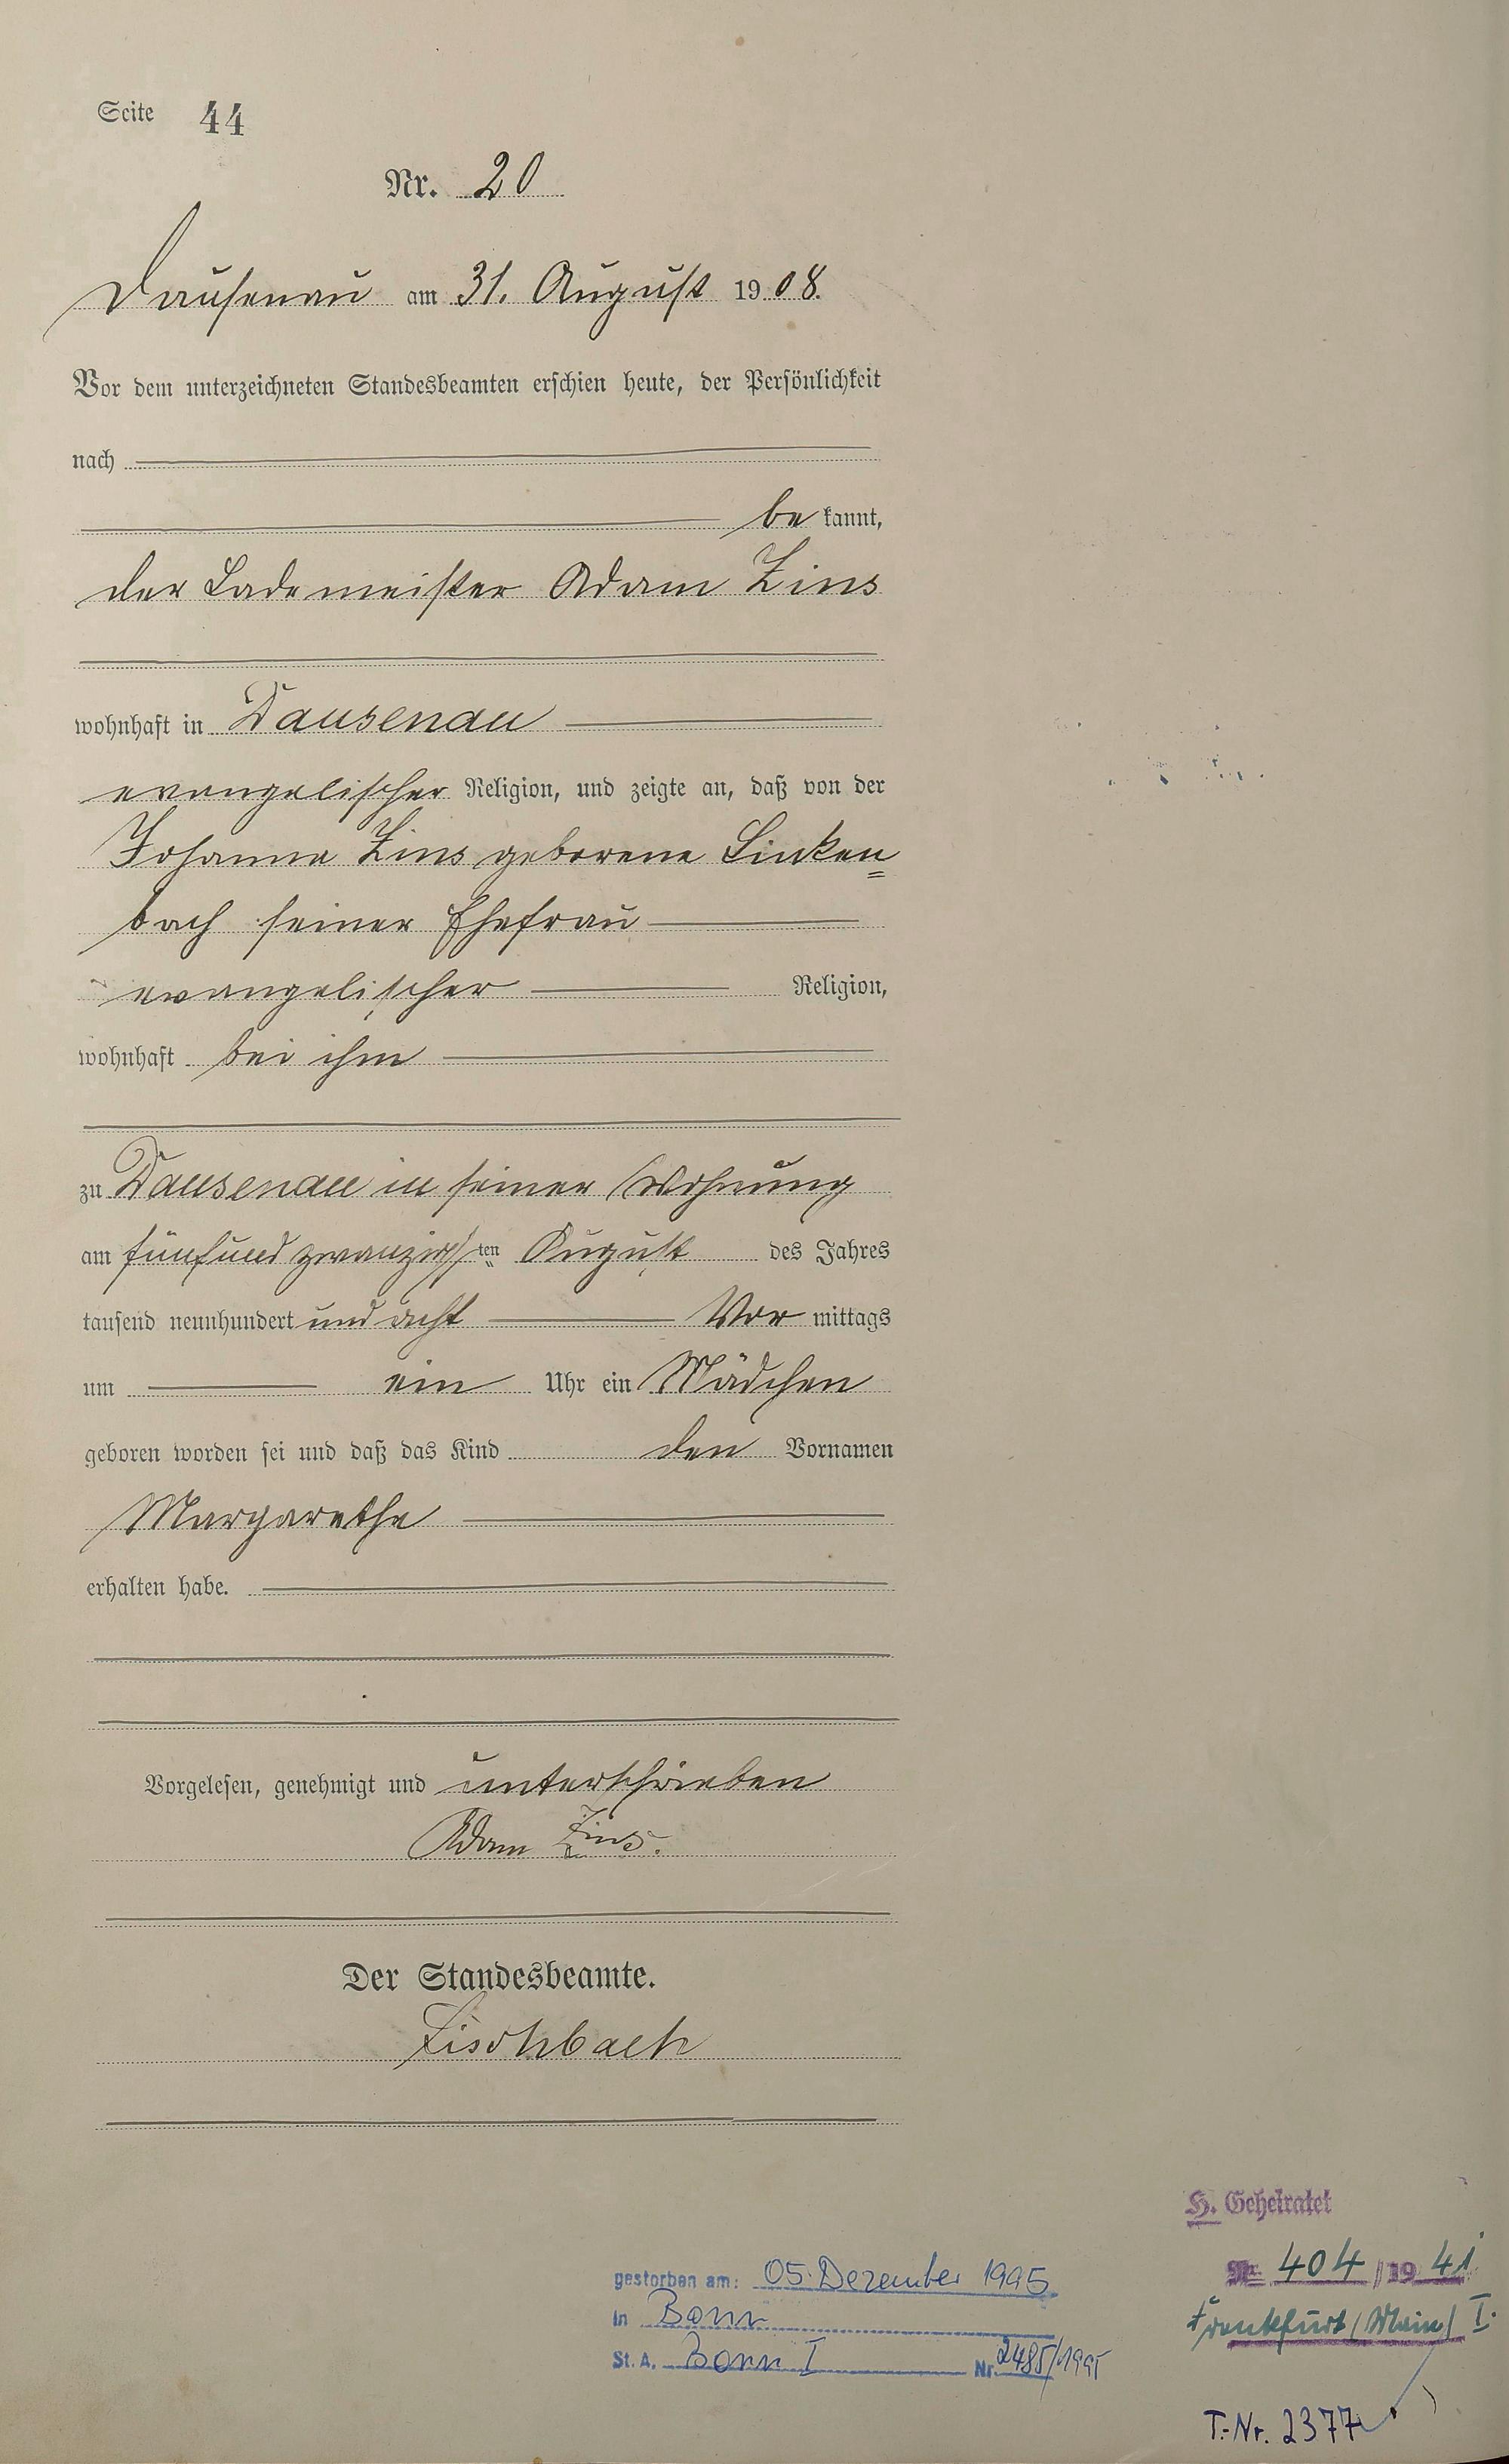 Seite 44
Nr. 20
Dausenau am 31. August 1908.
Vor dem unterzeichneten Standesbeamten erschien heute, der Persönlichkeit
nach
be kannt,
der Lademeister Adam Zins
wohnhaft in Dausenau
evangelischer Religion, und zeigte an, daß von der
Johanna Zins geborene Linken=
bach seiner Ehefrau
evangelischer Religion,
wohnhaft bei ihm
zu Dausenau in seiner Wohnung
am fünfundzwanzigsten August des Jahres
tausend neunhundert und acht Vor mittags
um ein Uhr ein Mädchen
geboren worden sei und daß das Kind den Vornamen
Margarethe
erhalten habe.
Vorgelesen, genehmigt und unterschrieben
Adam Zins.
Der Standesbeamte.
Fischbach
H. Geheiratet
Nr. 404 /1941
Frankfurt (Main) I.
gestorben am: 05. Dezember 1995
in Bonn
St. A. Bonn I Nr. 2485/1995
T.-Nr. 2377